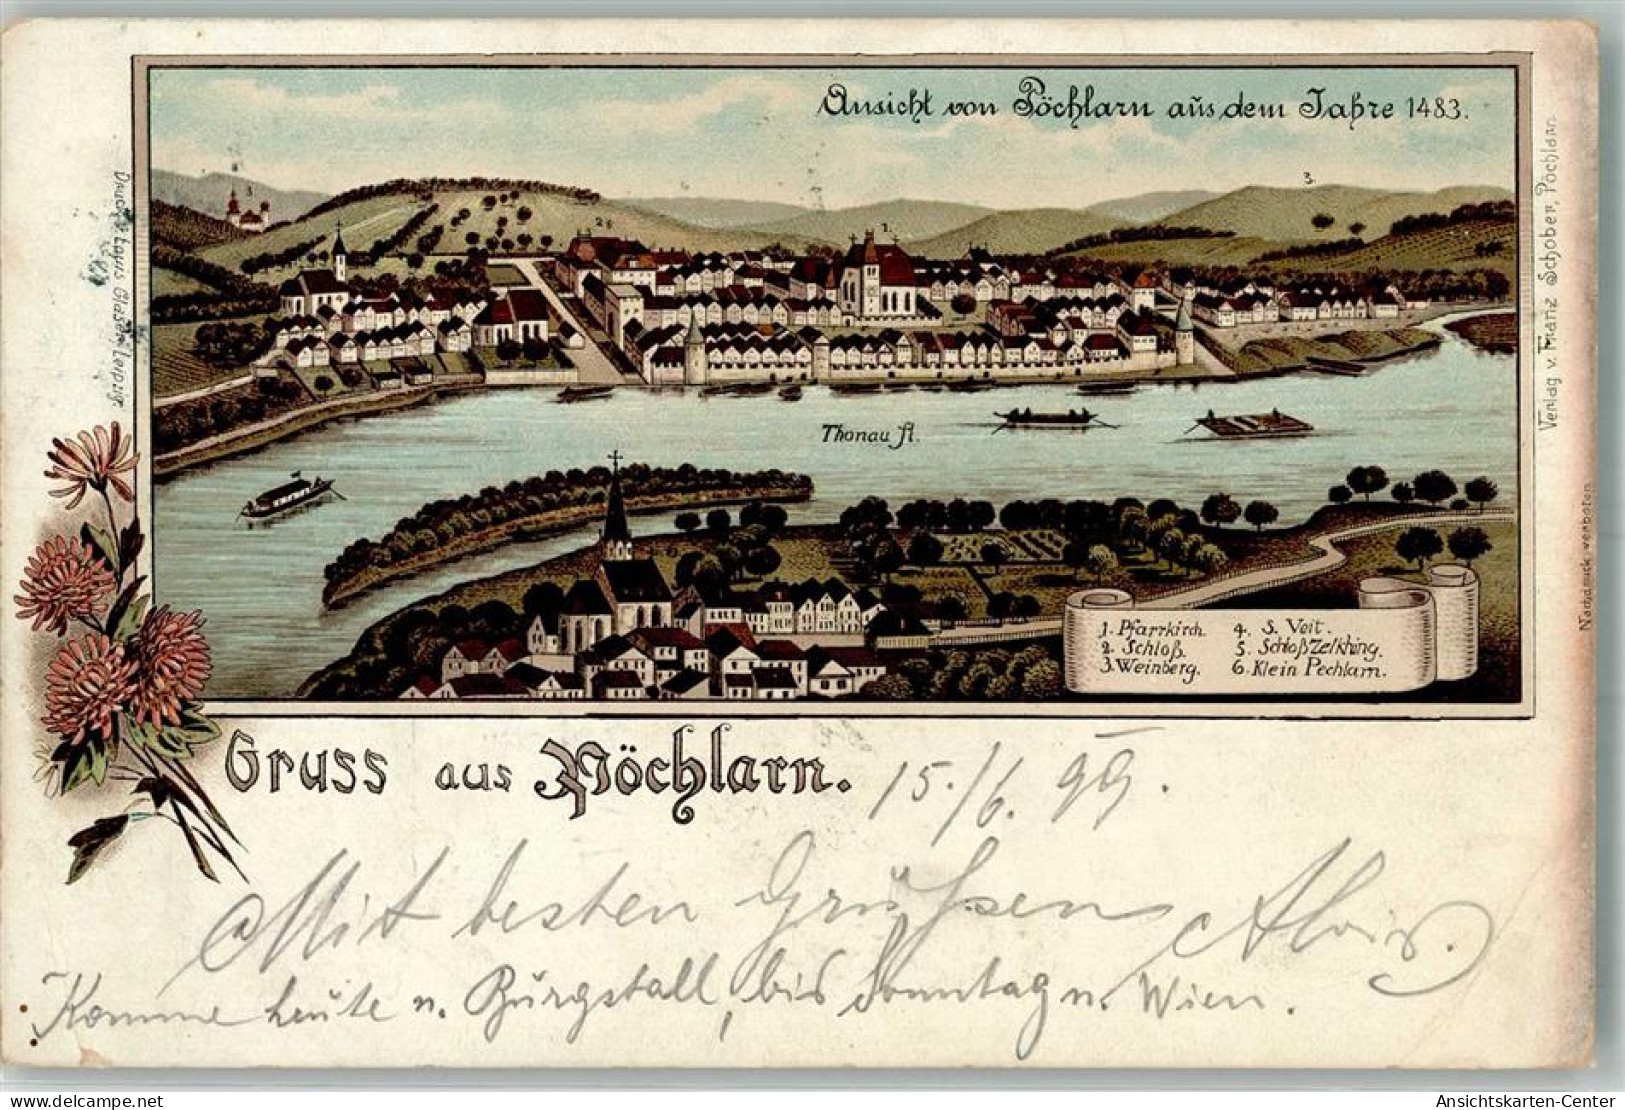 Ansicht von Pöchlarn aus dem Jahre 1483.
3.
5
2 6
1.
3.
Thonau fl.
1. Pfarrkirch.
2. Schloß.
3. Weinberg.
4. S. Veit.
5. Schloß Zelkhing.
6. Klein Pechlarn.
Druck v. Louis Glaser, Leipzig.
Verlag v. Franz Schober, Pöchlarn.
Nachdruck verboten.
Gruss aus Pöchlarn.
15./6. 99.
Mit besten Grüßen Alois.
Komme heute n. Burgstall, bis Sonntag n. Wien.
www.oldthing.de
Ansichtskarten-Center